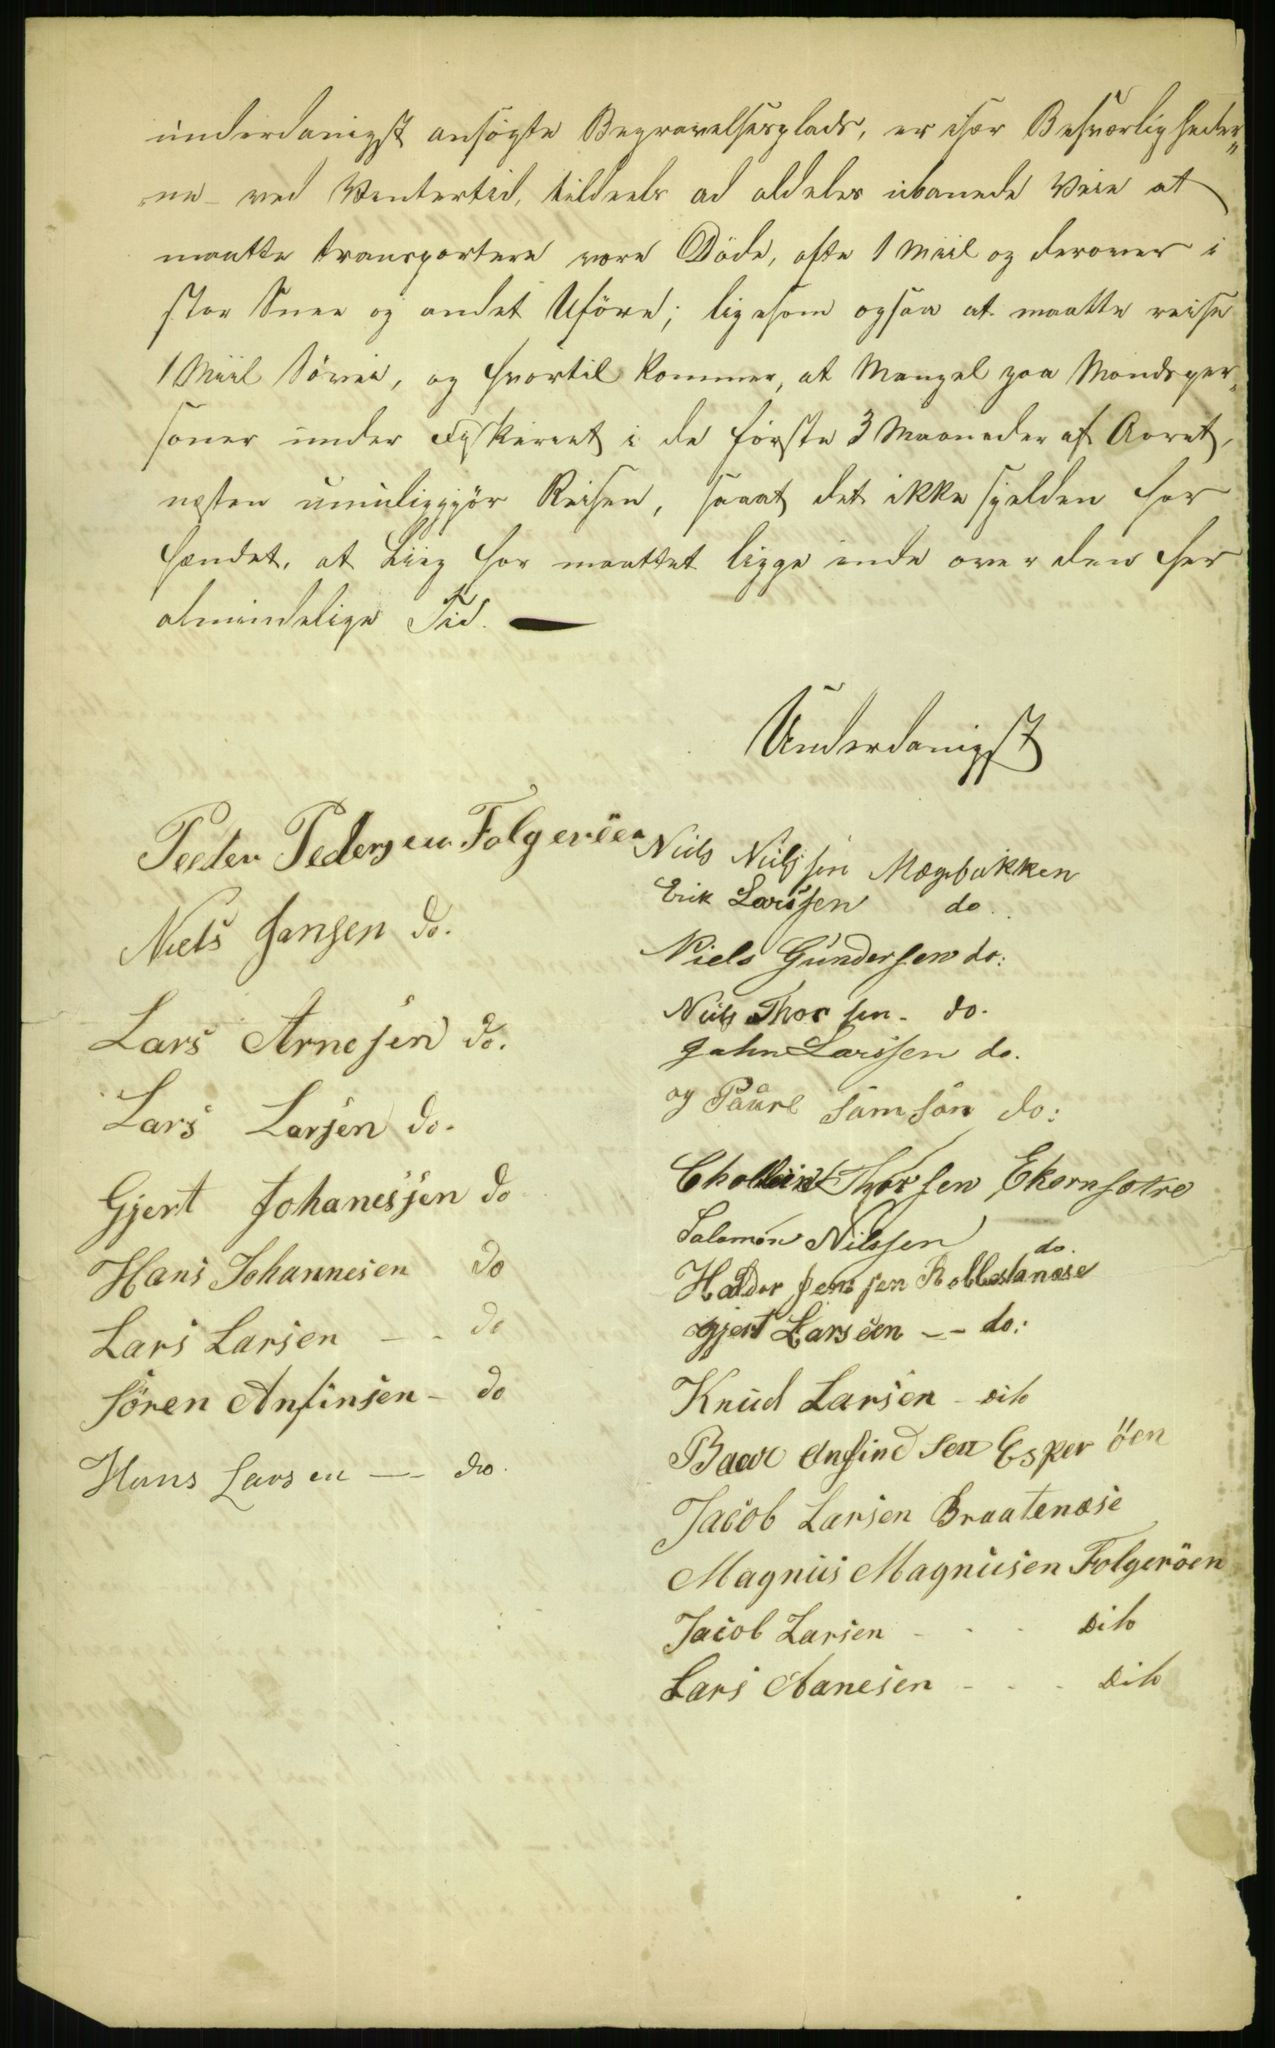 underdanigst ansøgte Begravelsesplads, er især Besværligheder„
ne ved Vintertid, tildeels ad aldeles ubanede Veie at
maatte transportere vore Døde, ofte 1 Miil og derover i
stor Snee og andet Uføre; ligesom ogsaa at maatte reise
1 Miil Søvei, og hvortil kommer, at Mangel paa Mandsper„
soner under Fiskeriet i de første 3 Maaneder af Aaret,
næsten umuliggjør Reisen, saaat det ikke sjelden har
hændet, at Liig har maattet ligge inde over den her
almindelige Tid. —
Underdanigst
Peder Pedersen Folgerøen
Niels Jansen do.
Lars Arnesen do.
Lars Larsen do.
Gjert Johanessen do
Hans Johannesen do
Lars Larsen -- do
Søren Anfinsen - do
Hans Larsen -- do.
Niels Nielssen Møgsbakken
Erik Larssen do.
Niels Gundersen do:
Niels Thorsen - do.
Jahn Larssen do.
og Pauel Samson do:
Thorsen Ekornsætre
Salomon Nilssen do.
Haldor Jensen Rabbestanæse
Gjert Larsen -- do:
Knud Larsen - dito
Baar Anfindsen Esperøen
Jacob Larsen Braatenæse
Magnus Magnusen Folgerøen
Jacob Larsen - - - dito
Lars Aanesen - - - dito